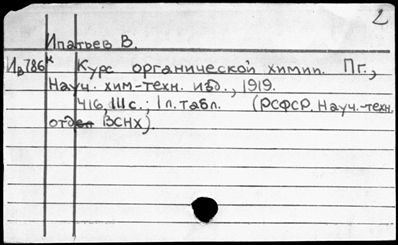 2
Ипатьев В.
Ив786к Курс органической химии. Пг.,
Науч. хим-техн. изд., 1919.
416, III с.; 1 л. табл. (РСФСР. Науч.-техн.
отдел ВСНХ).